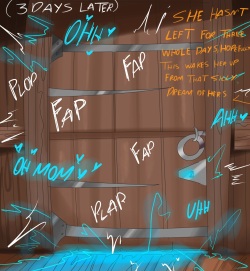 (3 DAYS LATER)
SHE HASN'T
LEFT FOR THREE
WHOLE DAYS HOPEFULLY
THIS WAKES HER UP
FROM THAT SICK
DREAM OF HERS
OHH
FAP
PLOP
FAP
AHH
OH MOM
FAP
PLAP
UHH